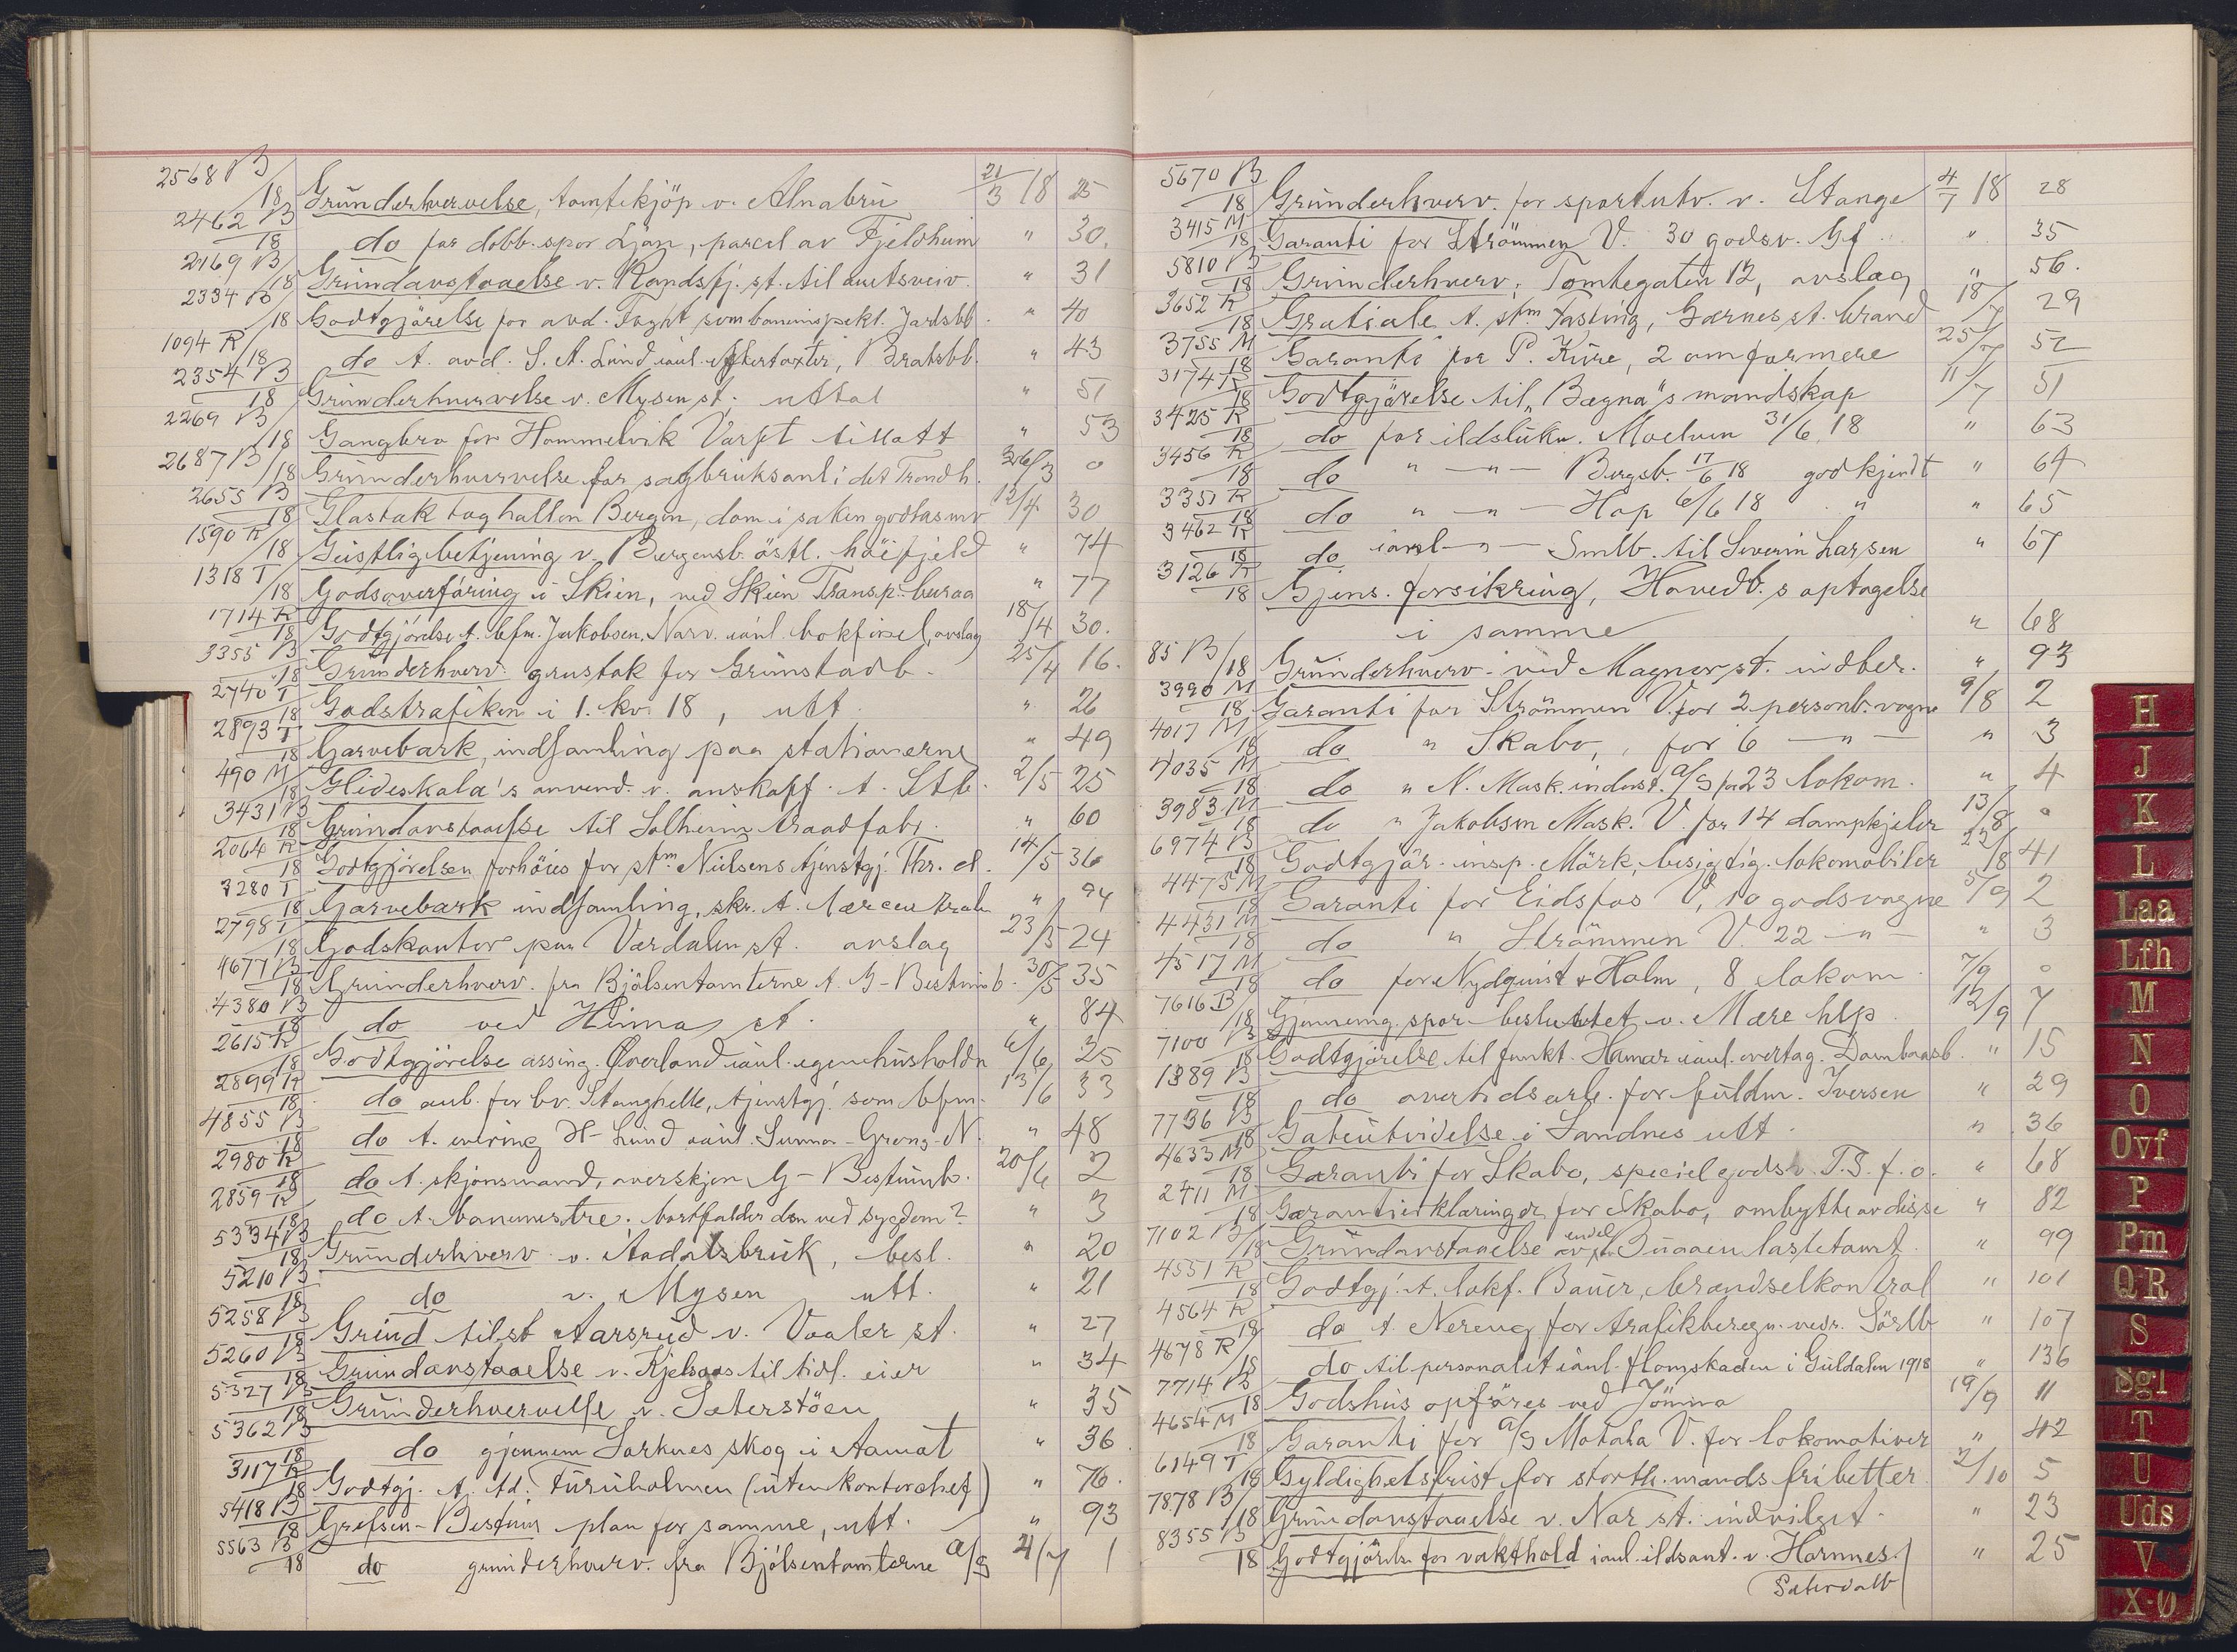 2568 B/18 Grunderhvervelse, tomtekjöp v. Alnabru 21/3 18 25
2462 B/18 do for dobb. spor Ljan, parcel av Fjeldheim " 30.
2169 B/18 Grundavstaaelse v. Randsfj. st. til amtsveiv. " 31
2334 B/18 Godtgjörelse for avd. som baneinspekt. Jarlsbb. " 40
1094 R/18 do t. avd. S. A. Lund aanl. Bratsbb. " 43
2354 B/18 Grunderhvervelse v. Mysen st. uttal " 51
2269 B/18 Gangbro for Hommelvik Varft tillatt " 53
2687 B/18 Grunderhvervelse for sagbruksanl i det Trondh. 26/3 0
2655 B/18 Glastak toghallen Bergen, dom i saken godtas 12/4 30
1590 R/18 Geistlig betjening v. Bergensb. östl. höifjeld " 74
1318 T/18 Godsoverföring i Skien, ved Skien Transp. buraa " 77
1714 R/18 Godtgjörelse t. bfm. Jakobsen, Narv. aanl. avslag 18/4 30.
3355 B/18 Grunderhverv. grustak for Grimstadb. 25/4 16.
2740 T/18 Godstrafiken i 1. kv. 18, utt. " 26
2893 T/18 Garvebark, indsamling paa stationerne " 49
490 M/18 Glideskala's anvend. v. anskaff. t. Stb. 2/5 25
3431 B/18 Grundavstaaelse til Solheim traadfabr. " 60
2064 R/18 Godtgjörelsen forhöies for stm Nielsens tjenstgj. Thr. el. 14/5 36
3280 T/18 Garvebark indsamling, skr. t. " 94
2798 T/18 Godskontor paa Værdalen st. avslag 23/5 24
4677 B/18 Grunderhverv. fra Bjölsentomterne t. G-Bestumb. 30/5 35
4380 B/18 do ved Heimdal st. " 84
2615 R/18 Godtgjörelse assing. Øverland aanl. egen husholdn 6/6 25
2899 R/18 do anl. for bv. Stanghelle, tjenstgj. som bfm. 13/6 33
4855 B/18 do t. H-Lund aanl. Sunnan-Grong-N. " 48
2980 R/18 do t. skjönsmænd, overskjön G-Bestumb. 20/6 2
2859 R/18 do t. banemestre. bortfalder den ved sygdom? " 3
5334 B/18 Grunderhverv v. Aadalsbruk, besl. " 20
5210 B/18 do v. Mysen utt. " 21
5258 B/18 Grund tilst Aarsrud v. Vaaler st. " 27
5260 B/18 Grundavstaaelse v. Kjelsaas til tidl. eier " 34
5327 B/18 Grunderhvervelse v. Sæterstöen " 35
5362 B/18 do gjennem Sorknes skog i Aamot " 36
3117 R/18 Godtgj. t. td. Furuholmen (uten kontorchef) " 76.
5418 B/18 Grefsen-Bestum plan for samme, utt. " 93
5563 B/18 do grunderhverv. fra Bjölsentomterne A/S 4/7 1
5670 B/18 Grunderhverv. for sportutv. v. Stange 4/7 18 28
3415 M/18 Garanti for Strömmen V. 30 godsv. Gf " 35
5810 B/18 Grunderhverv, Tomtegaten 12, avslag " 56.
3652 R/18 Gratiale t. stm Fasting, Garnes st. brand 18/7 29
3755 M/18 Garanti for P. Küre, 2 omformere 25/7 52
3174 R/18 Godtgjörelse til "Bægna"s mandskap 11/7 51
3425 R/18 do for ildslukn. Moelven 31/6 18 " 63
3456 R/18 do " — " — Bergsb. 17/6 18 godkjendt " 64
3351 R/18 do " — " — Hop 6/6 18 " " 65
3462 R/18 do aanl — " — Smlb. til Severin Larsen " 67
3126 R/18 Gjens. forsikring, Hovedb.s optagelse
i samme " 68
85 B/18 Grunderhverv. ved Magnor st. indber. " 93
3990 M/18 Garanti for Strömmen V. for 2 personb. vogne 9/8 2
4017 M/18 do " Skabo, for 6 — " — " 3
4035 M/18 do " N. Mask. indust. A/S for 23 lokom. " 4
3983 M/18 do " Jakobsen Mask. V. for 14 dampkjeler 13/8 0
6974 B/18 Godtgjör. insp. Mörk, besigtig. lokomobiler 22/8 41
4475 M/18 Garanti for Eidsfos V, 10 godsvogne 5/9 2
4431 M/18 do " Strömmen V. 22 — " — " 3
4517 M/18 do for Nydquist & Holm, 8 lokom. 7/9 0
7616 B/18 Gjennemg. spor besluttet v. Mære hlp. 12/9 7
7100 B/18 Godtgjörelse til funkt. Hamar aanl. overtag. Dombaasb. " 15
1389 B/18 do overtidsarb. for fuldm. Iversen " 29
7736 B/18 Gateutvidelse i Sandnes utt. " 36
4633 M/18 Garanti for Skabo, speciel godsv. T.S. f. o. " 68
2411 M/18 Garantierklæringer for Skabo, ombytte av disse " 82
7102 B/18 Grundavstaaelse av endel Buaaen lastetomt. " 99
4551 R/18 Godtgj. t. lokf. Bauer, brændselkontrol " 101
4564 R/18 do t. Nereng for trafikberegn. vedr. Sörlb " 107
4678 R/18 do til personalet aanl. flomskaden i Guldalen 1918 " 136
7714 B/18 Godshus opföres ved Jömna 19/9 11
4654 M/18 Garanti for A/S Motala V. for lokomotiver " 42
6149 T/18 Gyldighetsfrist for storth.mænds fribetter 2/10 5
7878 B/18 Grundavstaaelse v. Nor st. indvilget. " 23
8355 B/18 Godtgjörelse for vakthold aanl. ildsant. v. Hornnes. " 25
Setesdalb
H
J
K
L
Laa
Lfh
M
N
O
Ovf
P
Pm
QR
S
Sgl
T
U
Uds
V
X-Ø